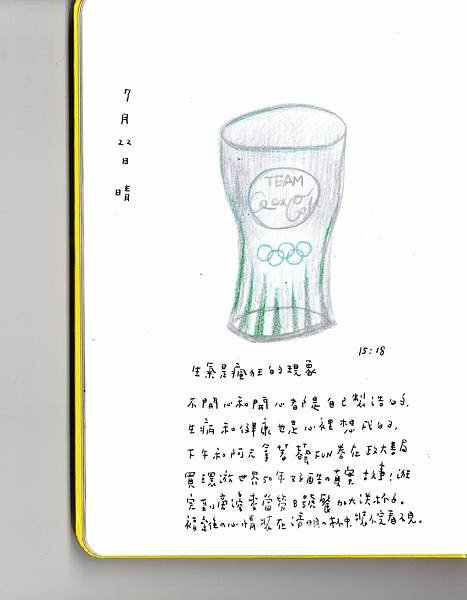 7月22日 晴
TEAM
Coca Cola
15:18
生氣是瘋狂的現象
不開心和開心都是自己製造的.
生病和健康也是心裡想成的.
下午和阿元拿著藝FUN券在政大書局
買環遊世界50年好酷的真實故事!逛
完到南邊麥當勞8號餐加大送杯子.
複雜の心情裝在透明の杯中裝完看不見.